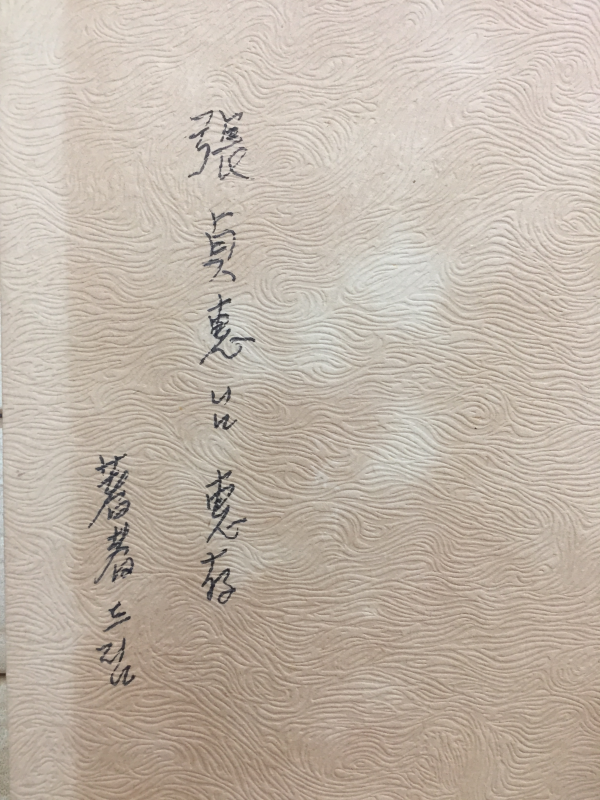 張貞惠님 惠存
著者 드림